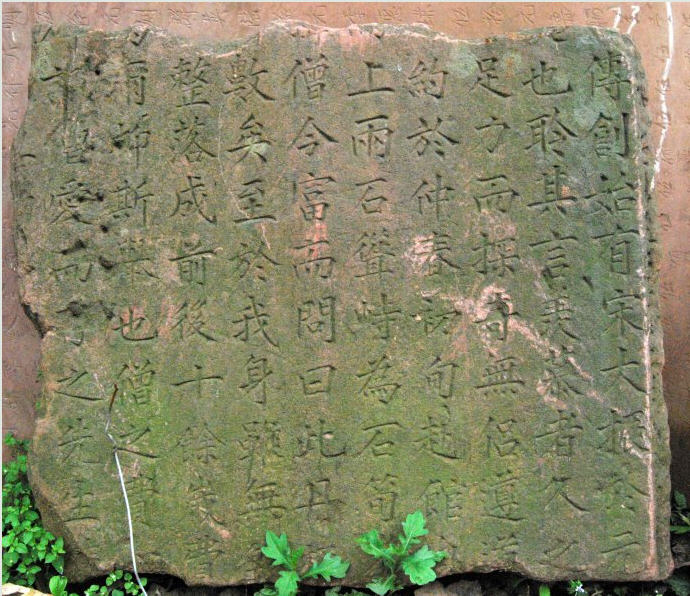 傳創始有宋大
也聆其言羨慕者久之
足力而探奇無侶遵
約於仲春初旬赴館
上兩石聳峙為石筍
僧今富而問曰此丹
數矣至於我身雖無
整落成前後十餘
師斯舉也僧之費
僧愛而之先生